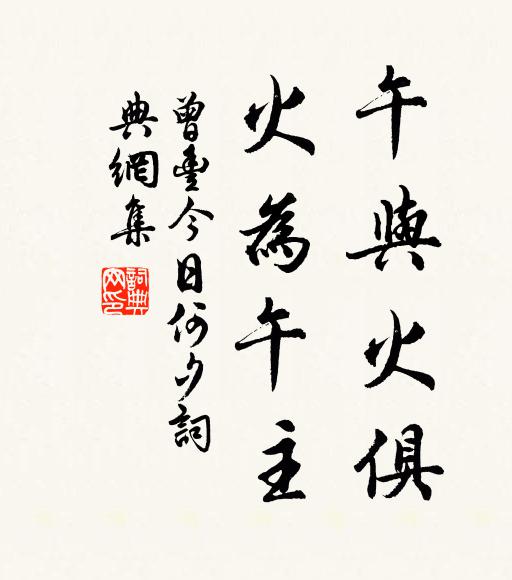 午與火俱
火為午主
曾豐今日何夕詞
典網集
詞典網印